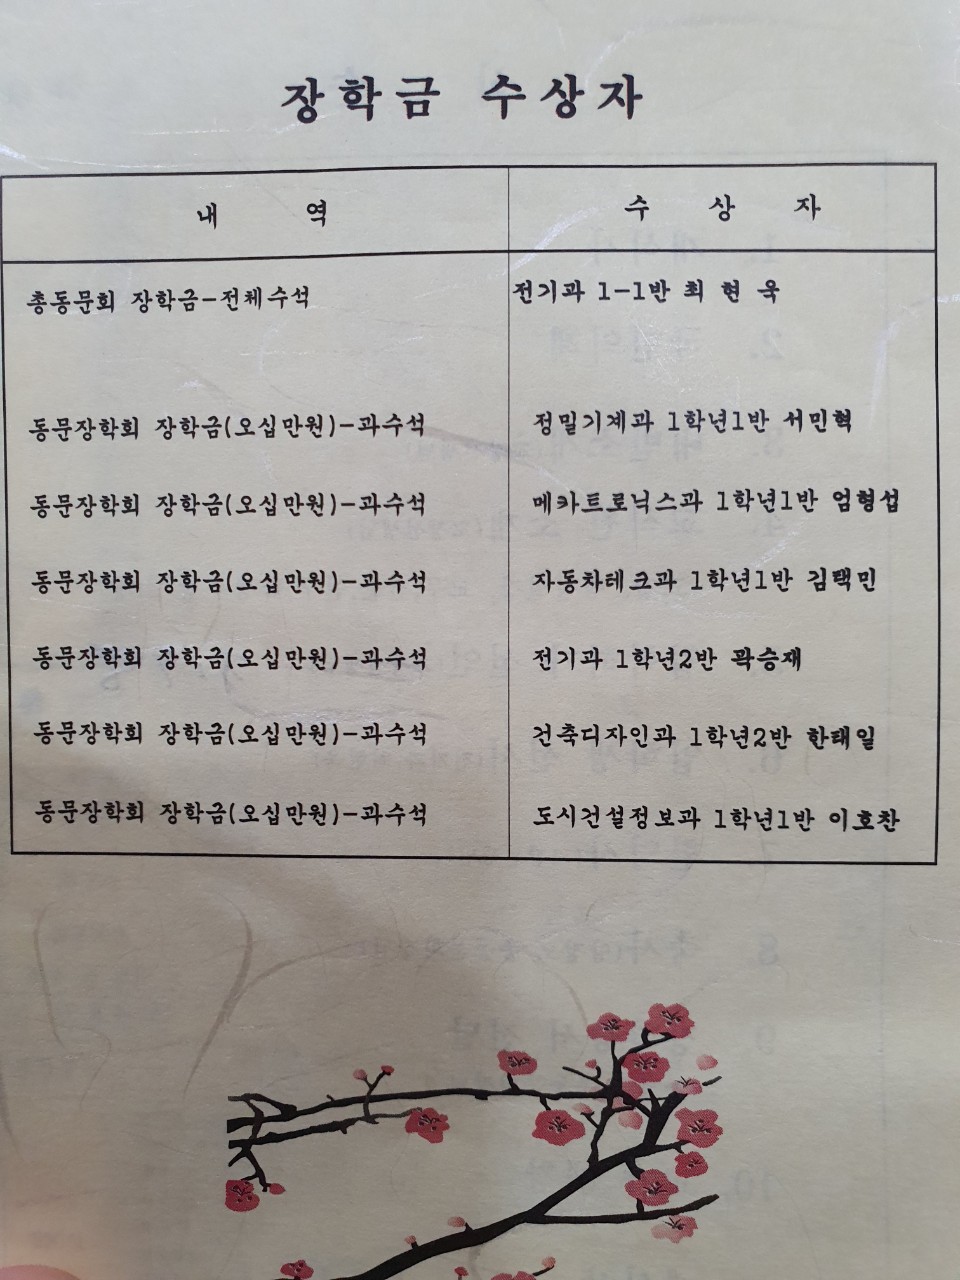 장학금 수상자
내 역 수 상 자
총동문회 장학금-전체수석 전기과 1-1반 최 현 욱
동문장학회 장학금(오십만원)-과수석 정밀기계과 1학년1반 서민혁
동문장학회 장학금(오십만원)-과수석 메카트로닉스과 1학년1반 엄형섭
동문장학회 장학금(오십만원)-과수석 자동차테크과 1학년1반 김택민
동문장학회 장학금(오십만원)-과수석 전기과 1학년2반 곽승재
동문장학회 장학금(오십만원)-과수석 건축디자인과 1학년2반 한태일
동문장학회 장학금(오십만원)-과수석 도시건설정보과 1학년1반 이호찬